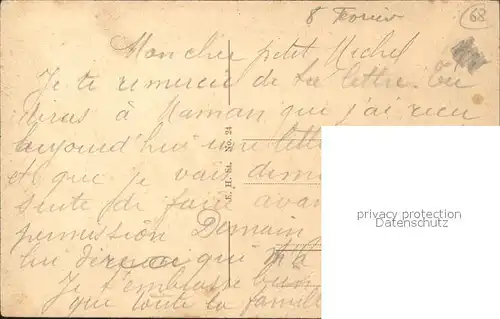 8 Fevrier
68
Mon cher petit Michel
Je te remercie de ta lettre. Tu
diras à Maman que j'ai recu
aujourd'hui une lettre
et que je vais
de faire avant
permission Demain
qui m'a
Je t'embrasse bien
que toute la famille
E. H. St. No. 24
privacy protection
Datenschutz